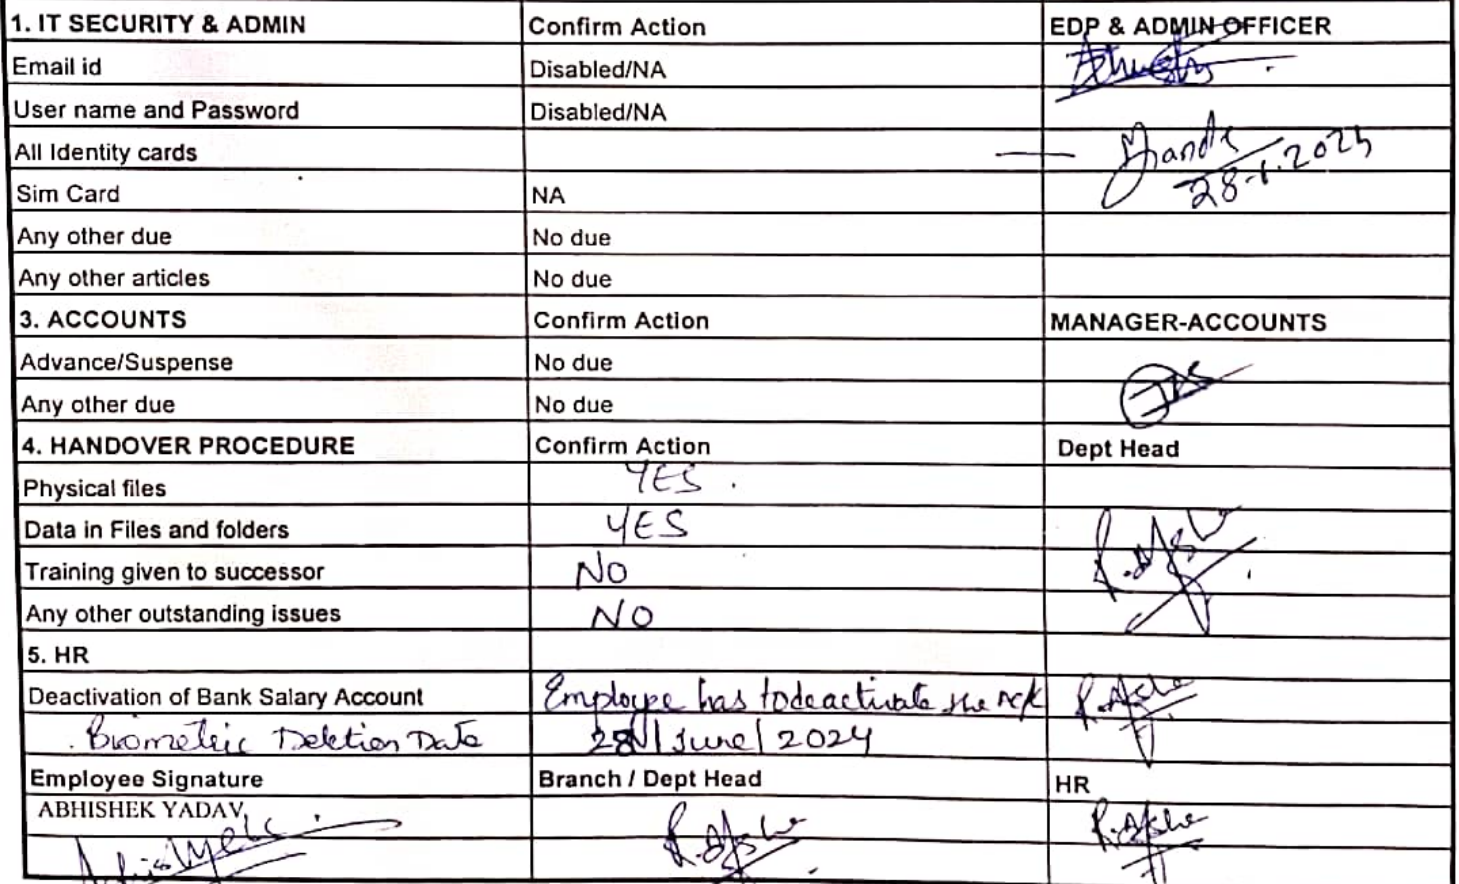 1. IT SECURITY & ADMIN Confirm Action EDP & ADMIN OFFICER
Email id Disabled/NA
User name and Password Disabled/NA
All Identity cards —
Sim Card NA
Any other due No due
Any other articles No due
3. ACCOUNTS Confirm Action MANAGER-ACCOUNTS
Advance/Suspense No due
Any other due No due
4. HANDOVER PROCEDURE Confirm Action Dept Head
Physical files YES.
Data in Files and folders YES
Training given to successor NO
Any other outstanding issues NO
5. HR
Deactivation of Bank Salary Account Employee has to deactivate the A/c
Biometric Deletion Date 28/June/2024
Employee Signature Branch / Dept Head HR
ABHISHEK YADAV